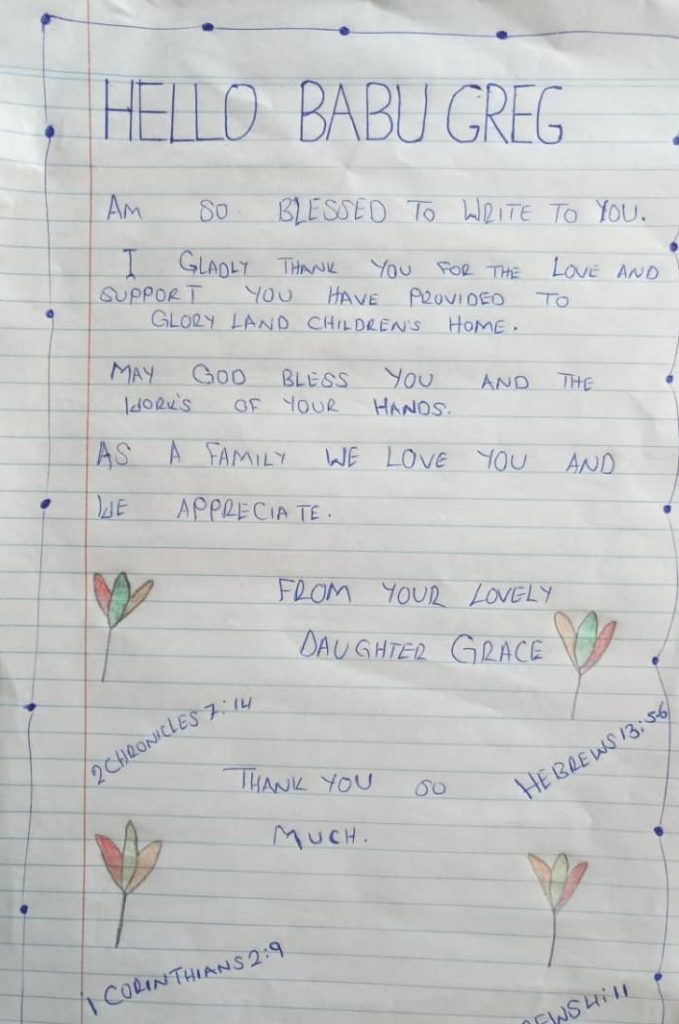 HELLO BABU GREG
AM SO BLESSED TO WRITE TO YOU.
I GLADLY THANK YOU FOR THE LOVE AND
SUPPORT YOU HAVE PROVIDED TO
GLORY LAND CHILDREN'S HOME.
MAY GOD BLESS YOU AND THE
WORK'S OF YOUR HANDS.
AS A FAMILY WE LOVE YOU AND
WE APPRECIATE.
FROM YOUR LOVELY
DAUGHTER GRACE
2 CHRONICLES 7:14
HEBREWS 13:5-6
THANK YOU SO
MUCH.
1 CORINTHIANS 2:9